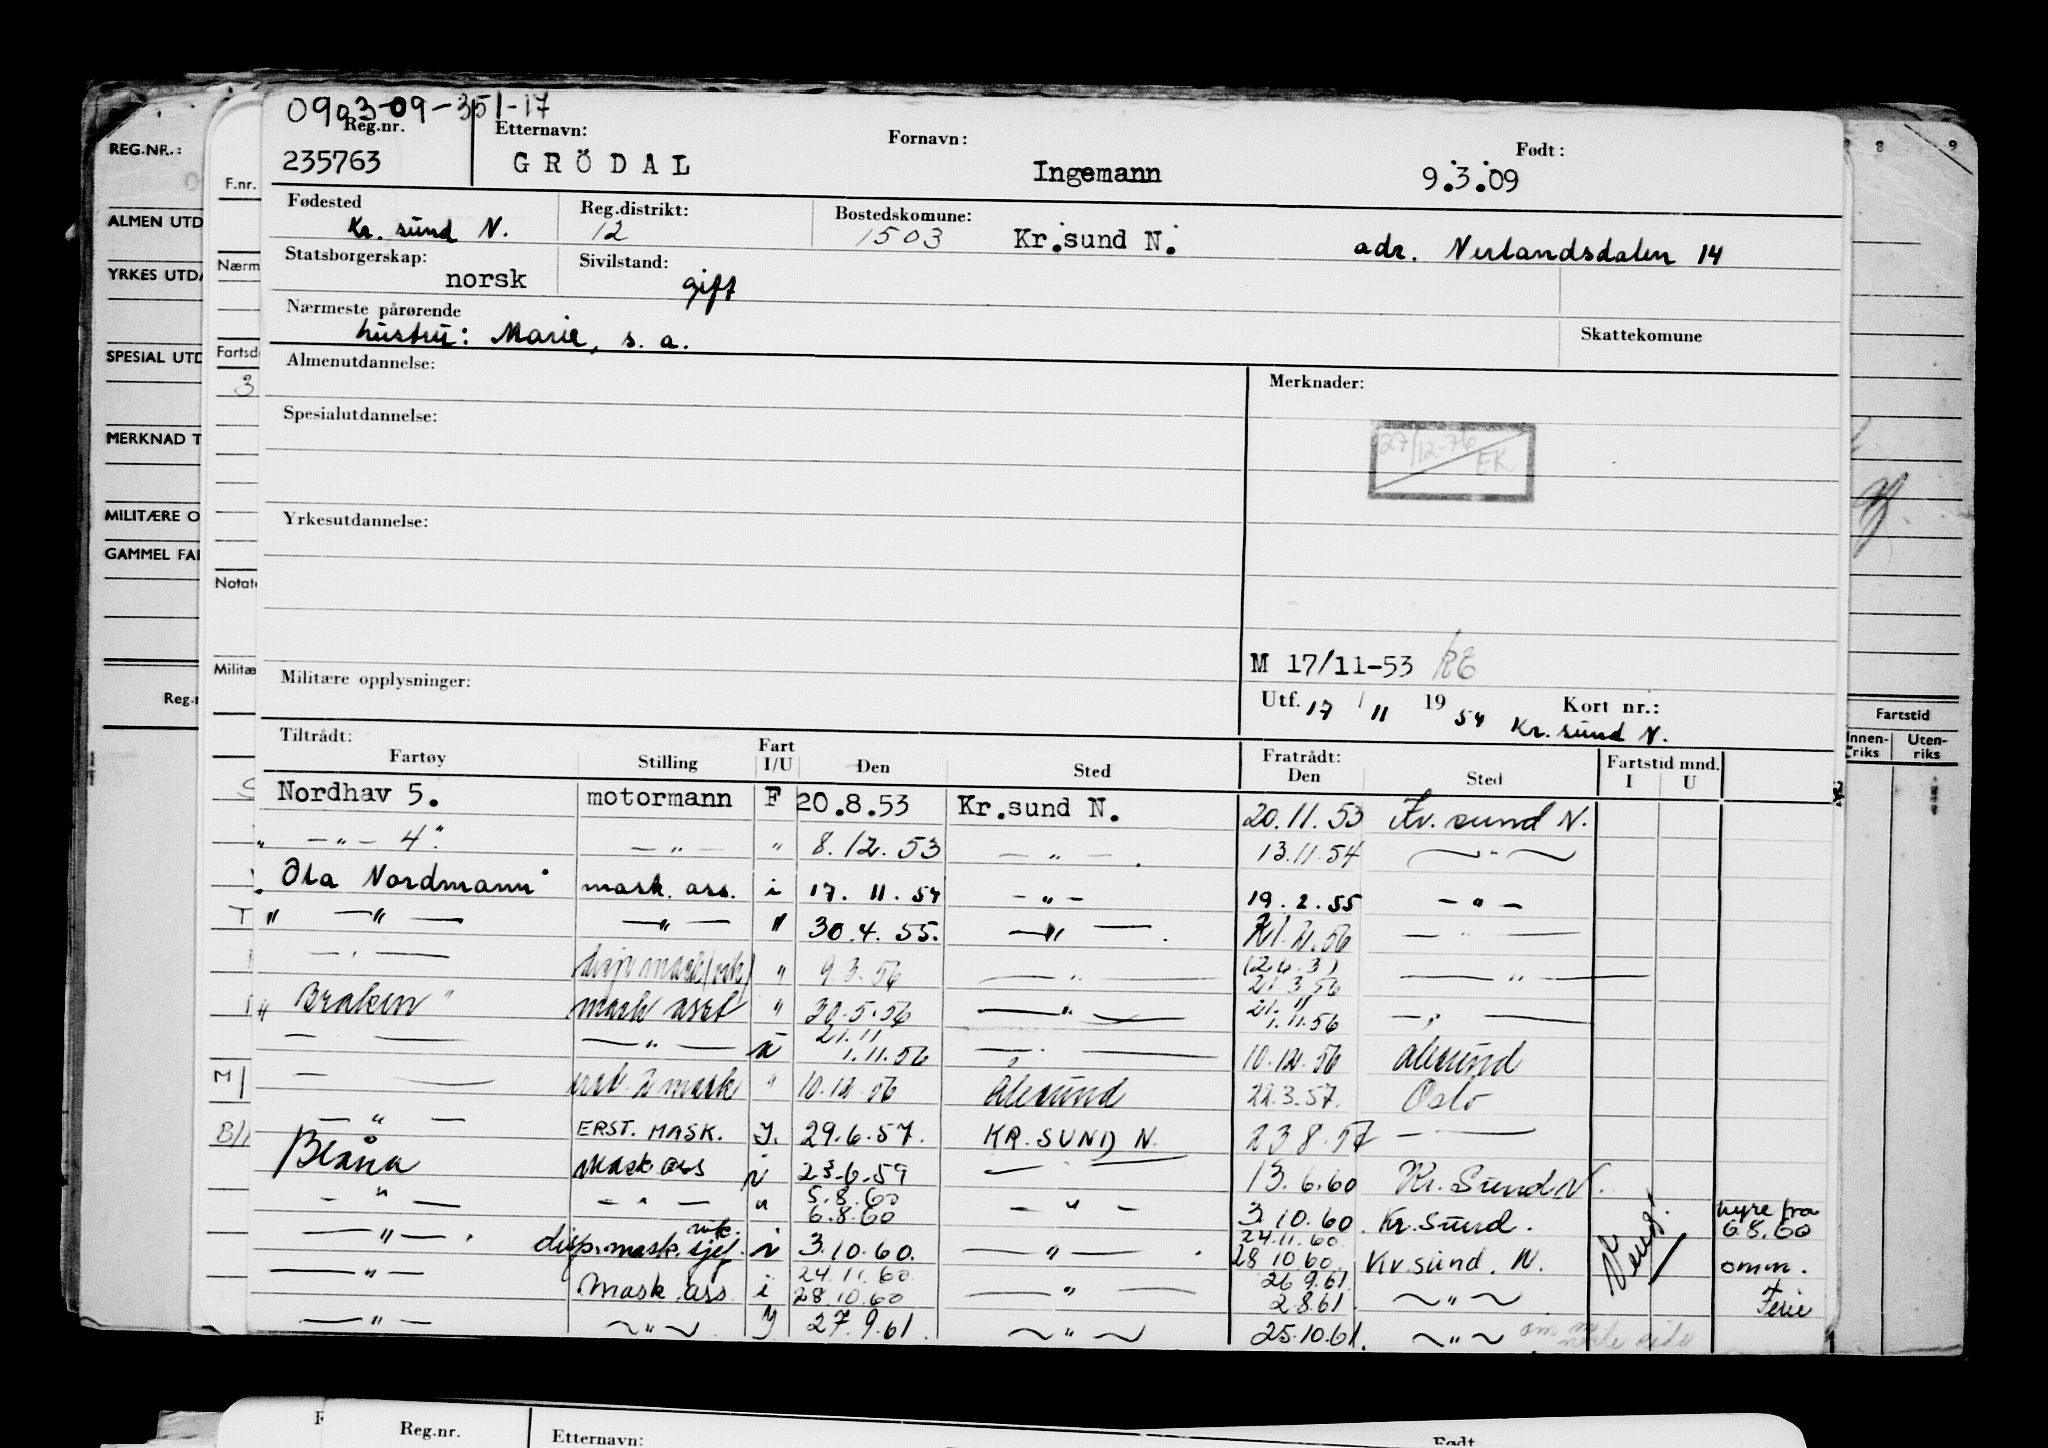 0903-09-351-17
Reg.nr. Etternavn: Fornavn: Født:
235763 GRÖDAL Ingemann 9.3.09
Fødested Reg.distrikt: Bostedskomune:
Kr. sund N. 12 1503 Kr.sund N. adr. Nerlandsdalen 14
Statsborgerskap: Sivilstand:
norsk gift
Nærmeste pårørende Skattekomune
hustru: Marie, s. a.
Almenutdannelse: Merknader:
Spesialutdannelse:
27/12-76 EK
Yrkesutdannelse:
M 17/11-53
Militære opplysninger: Utf. 17 / 11 19 54 Kort nr.:
Kr. sund N.
Tiltrådt: Fratrådt:
Fartøy Stilling Fart I/U Den Sted Den Sted Fartstid mnd. I U
Nordhav 5. motormann F 20.8.53 Kr.sund N. 20.11.53 Kr. sund N.
" — " — 4" — " — " 8.12.53 — " — . 13.11.54 — " —
"Ola Nordmann" mask. ass. i 17. 11. 54 — " — 19. 2. 55 — " —
" — " — — " — " 30.4.55. — " — . 56 — " —
— " — " 9.3.56 — " — 21.3.56 — " —
" Braken " mask asst " 30.5.56 — " — 1.11.56 — " —
— — — " — u 21.11 1.11.56 — " — 10.12.56 Alesund
— — mask " 10.12.56 Alesund 22.3.57. Oslo
— " — ERST. MASK. J. 29.6.57. KR. SUND N. 23 8.57 — —
Blåna Mask ass i 23.6.59 — — 13.6.60 Kr. Sund N.
— " — — " — " 5.8.60 6.8.60 — " — 3.10.60. Kr. Sund. hyre fra 6.8.60
— " — . disp. mask. sjef. vik. i 3.10.60. — " — . 24.11.60 28 10 60. Kr. sund. N. omm.
— " — Mask. ass. i 24.11.60. 28.10.60 — " — 26 9.61 2 8.61. ~ " ~ Ferie
— " — ~ " ~ J 27.9.61. ~ " ~ 25.10.61. ~ " ~
REG.NR.:
ALMEN UTD
YRKES UTDA
SPESIAL UTD
MERKNAD T
MILITÆRE O
GAMMEL FA
Reg.n
F.nr.
Nærm
Fartsd
3
Notate
Militæ
8 9
Fartstid
Innen-riks Uten-riks
Reg.nr. Etternavn: Født